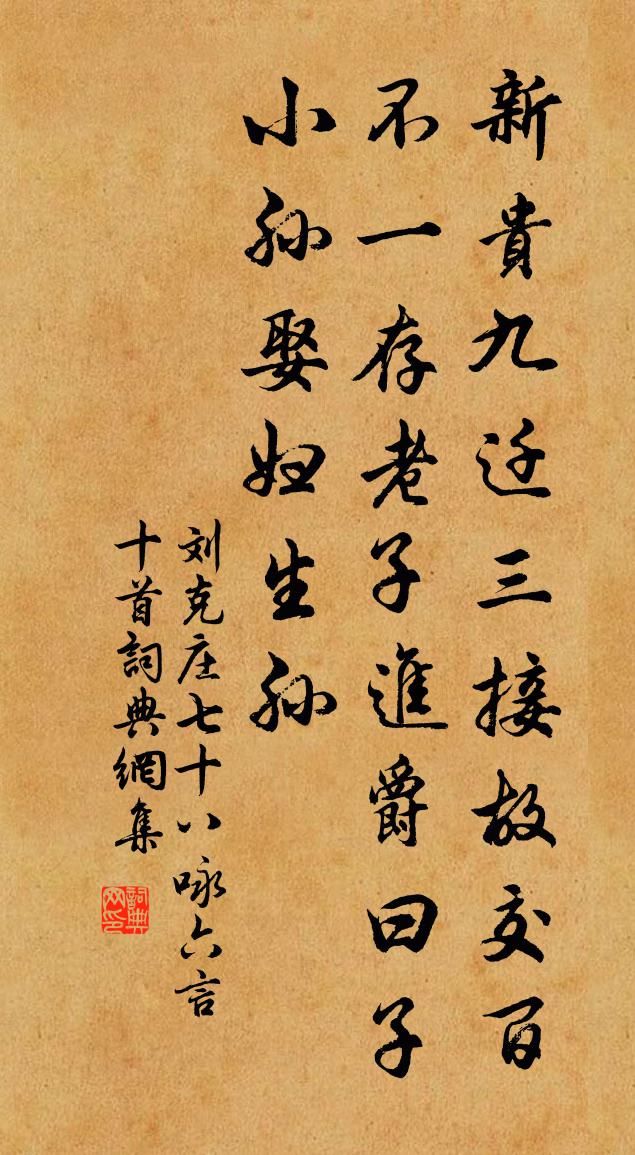 新貴九迁三接故交百
不一存老子進爵曰子
小孙娶妇生孙
刘克庄七十八咏六言
十首詞典網集
詞典网印